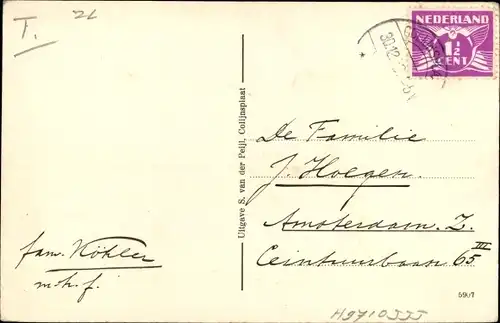 T.
NEDERLAND
1½
CENT
30.12
Uitgave S. van der Peijl, Colijnsplaat
De Familie
J. Hoegen.
Amsterdam. Z.
Ceintuurbaan 65 III
fam. Köhler
m.h.f.
5907
H9710JJJ